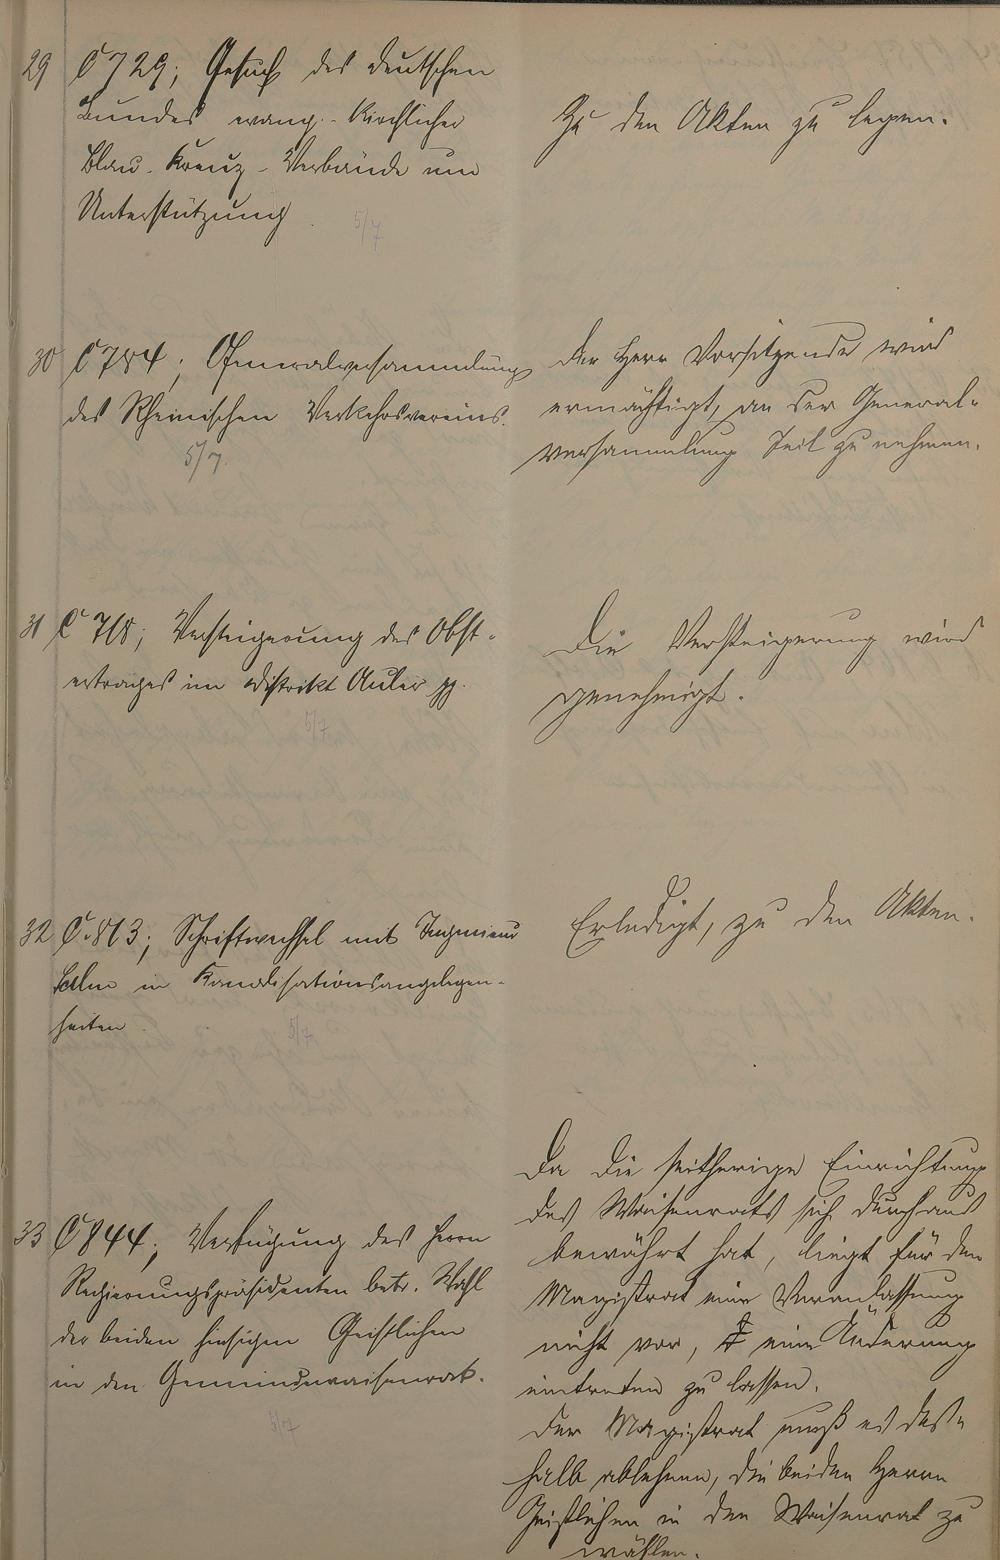 29 C 729; Gesuch des deutschen
Bundes evang.-kirchlicher
Blau-Kreuz-Verbände um
Unterstützung.
5/7
Zu den Akten zu legen.
30 C 784; Generalversammlung
des Rheinischen Verkehrsvereins.
5/7.
Der Herr Vorsitzende wird
ermächtigt, an der General-
versammlung Teil zu nehmen.
31 C 718; Versteigerung des Obst-
ertrages im Distrikt Auler pp.
5/7
Die Versteigerung wird
genehmigt.
32 C. 813; Schriftwechsel mit Ingenieur
in Kanalisationsangelegen-
heiten.
5/7
Erledigt, zu den Akten.
33 C 844; Verfügung des Herrn
Regierungspräsidenten betr. Wahl
der beiden hiesigen Geistlichen
in den Gemeindewaisenrat.
5/7
Da die seitherige Einrichtung
des Waisenrats sich durchaus
bewährt hat, liegt für den
Magistrat eine Veranlassung
nicht vor, eine Änderung
eintreten zu lassen.
Der Magistrat muß es des-
halb ablehnen, die beiden Herren
Geistlichen in den Waisenrat zu
wählen.